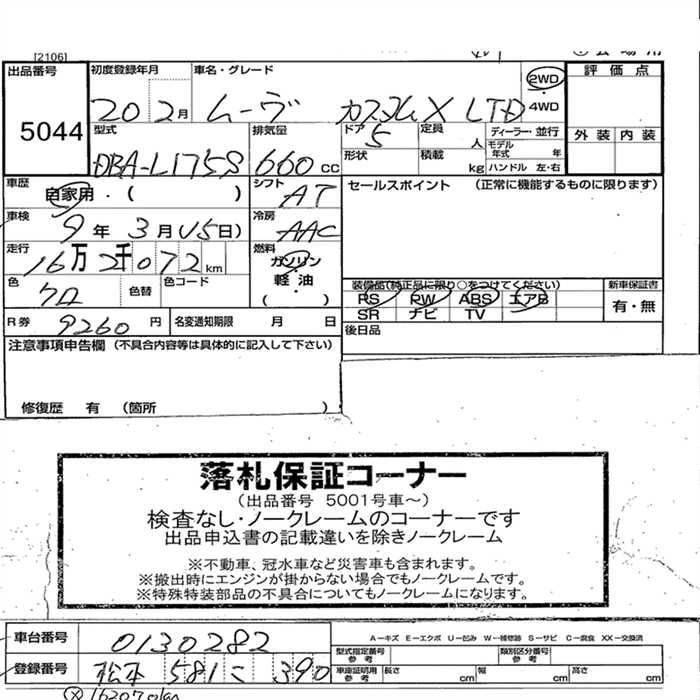 [2106]
出品番号 5044
初度登録年月 20 2月
車名・グレード ムーヴ カスタム X LTD
2WD ・ 4WD
評価点
外装 内装
型式 DBA-L175S
排気量 660 cc
ドア 5
定員 人
ディーラー・並行
モデル年式 年
形状
積載 kg
ハンドル 左・右
車歴 自家用・( )
シフト AT
セールスポイント (正常に機能するものに限ります)
車検 9年 3月(15日)
冷房 AAC
走行 16万2千072km
燃料 ガソリン 軽・油 ( )
色 クロ 色替 色コード
装備品(純正品に限り○をつけてください)
新車保証書 有・無
PS PW ABS エアB
SR ナビ TV
R券 9260円
名変通知期限 月 日
後日品
注意事項申告欄 (不具合内容等は具体的に記入して下さい)
修復歴 有 (箇所 )
落札保証コーナー
(出品番号 5001号車~)
検査なし・ノークレームのコーナーです
出品申込書の記載違いを除きノークレーム
※不動車、冠水車など災害車も含まれます。
※搬出時にエンジンが掛からない場合でもノークレームです。
※特殊特装部品の不具合についてもノークレームになります。
車台番号 0130282
A-キズ E-エクボ U-凹み W-補修跡 S-サビ C-腐食 XX-交換済
型式指定番号 参考
類別区分番号 参考
登録番号 松本 581 こ 390
車庫証明用 参考 長さ cm 幅 cm 高さ cm